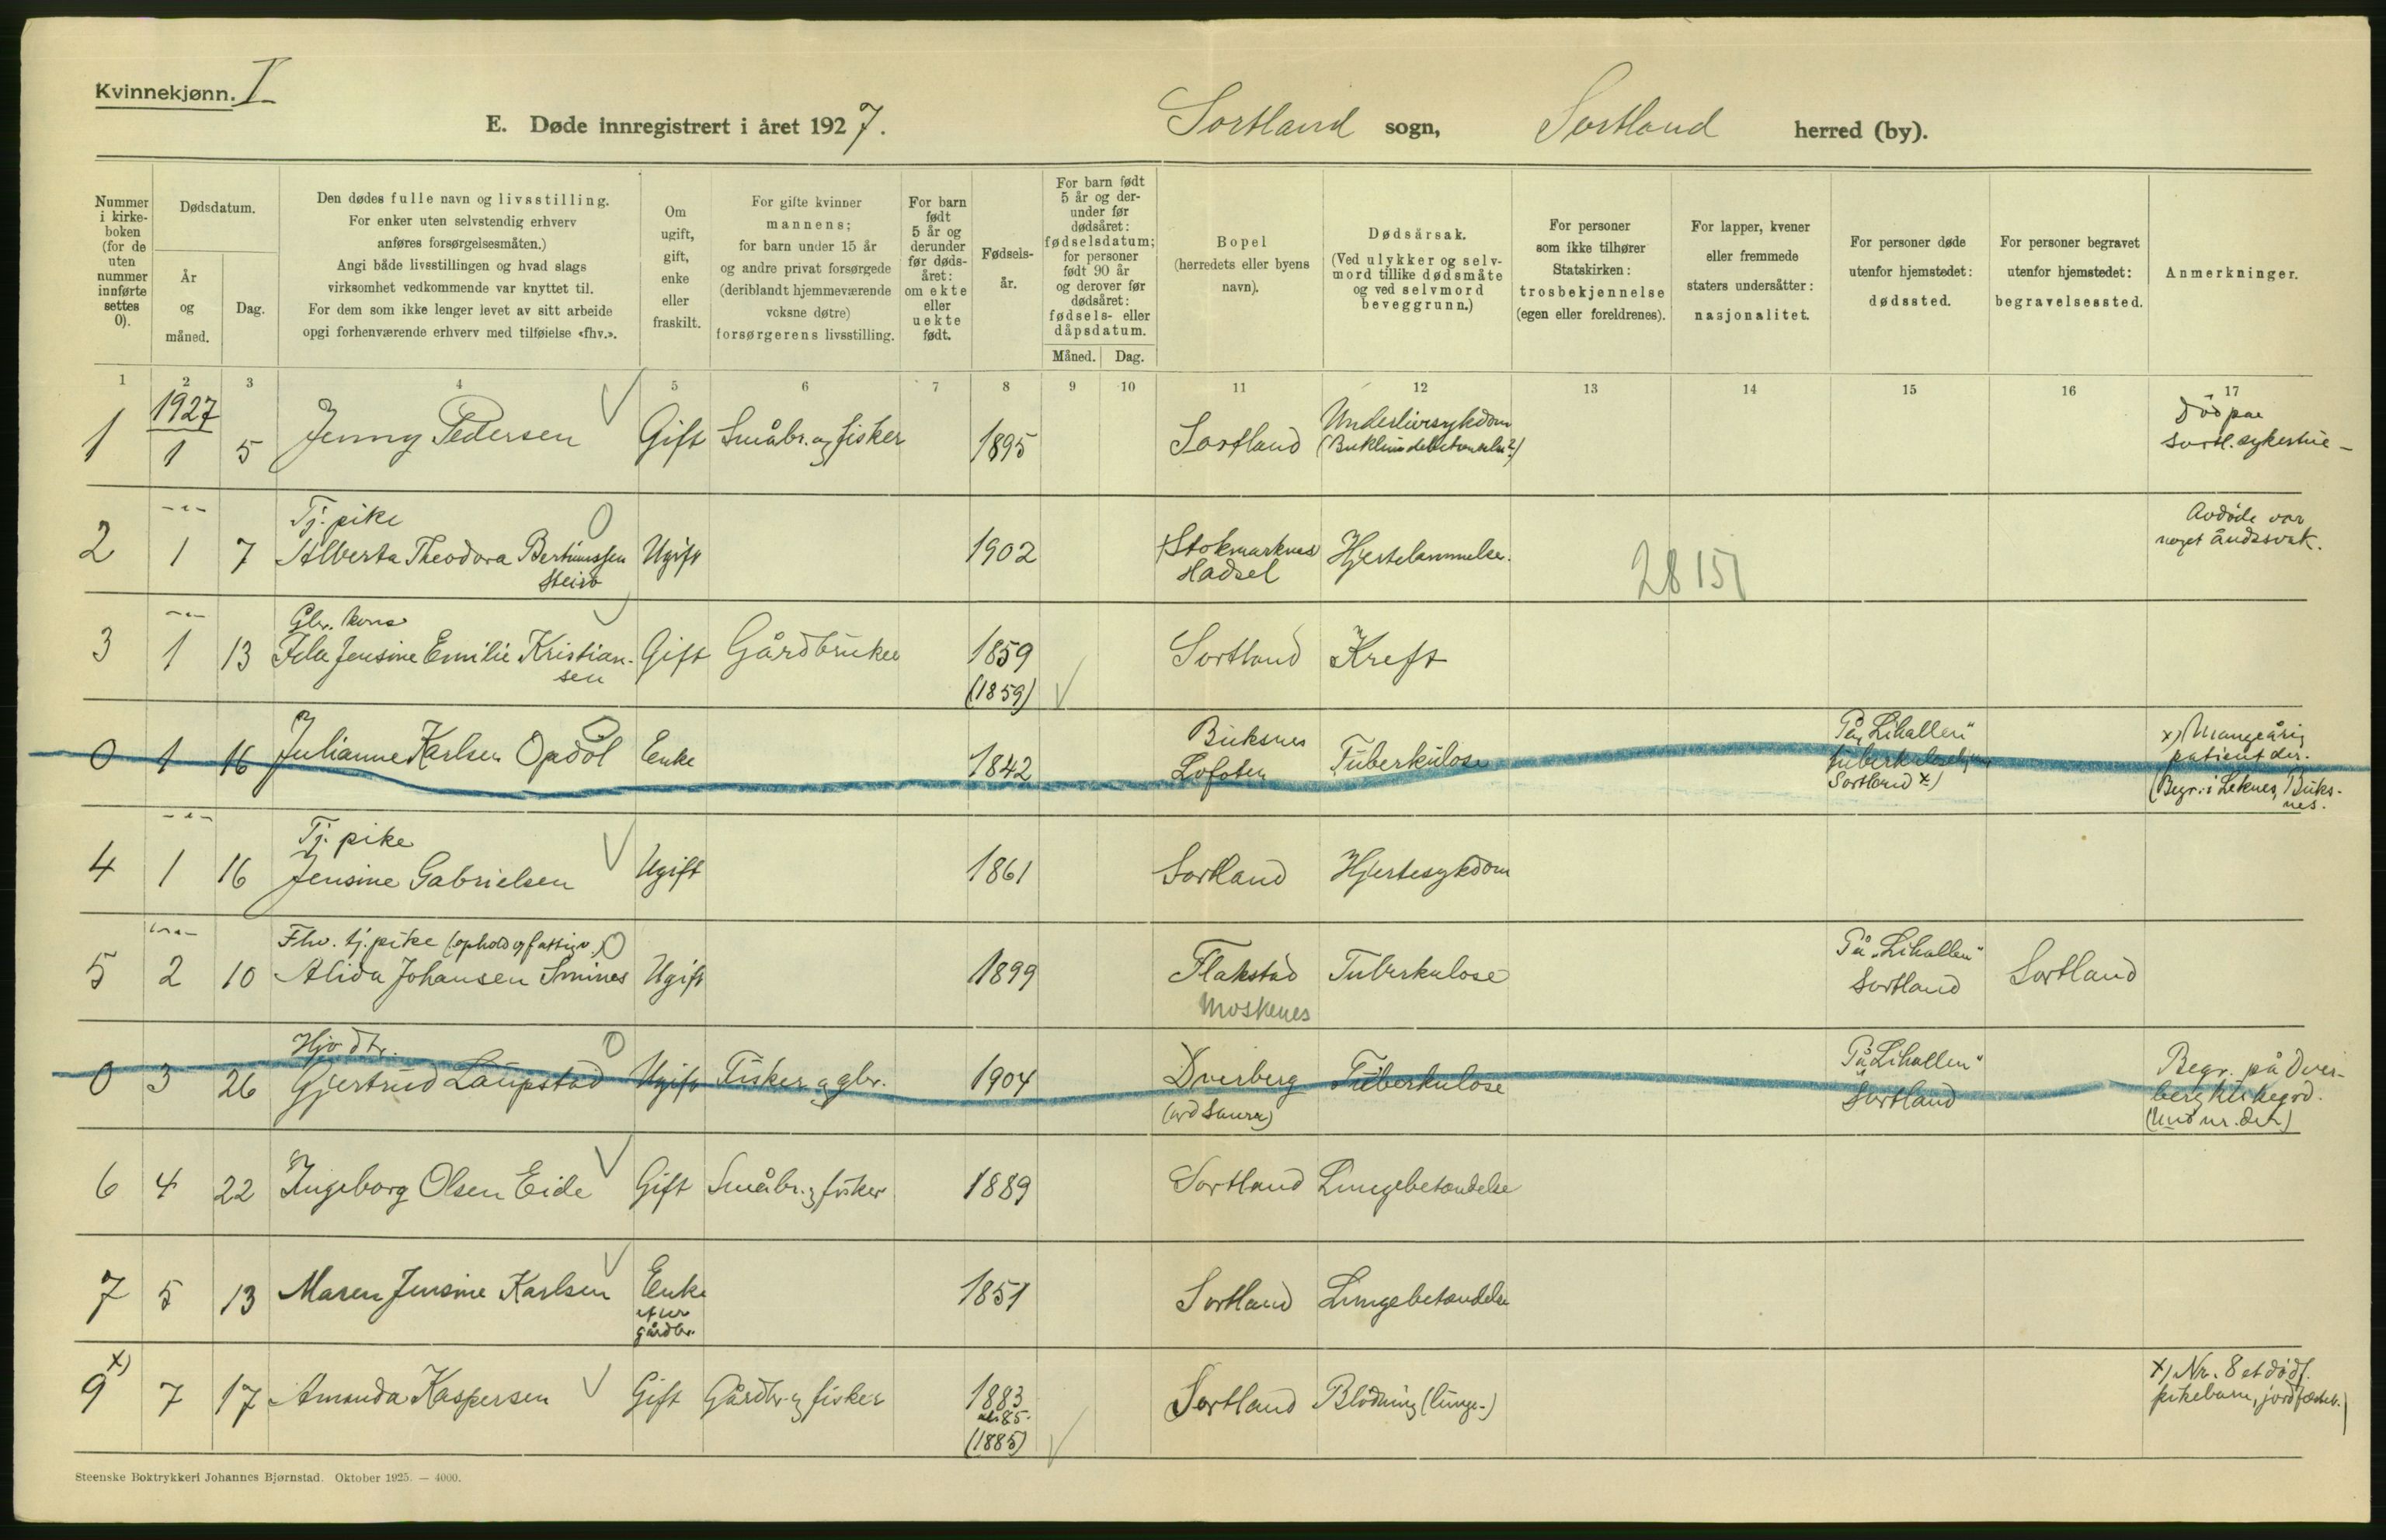 Kvinnekjønn. I
E. Døde innregistrert i året 1927. Sortland sogn, Sortland herred (by).
Nummer
i kirke-
boken
(for de
uten
nummer
innførte
settes
0).
Dødsdatum.
År
og
måned.
Dag.
Den dødes fulle navn og livsstilling.
For enker uten selvstendig erhverv
anføres forsørgelsesmåten.)
Angi både livsstillingen og hvad slags
virksomhet vedkommende var knyttet til.
For dem som ikke lenger levet av sitt arbeide
opgi forhenværende erhverv med tilføielse «fhv.».
Om
ugift,
gift,
enke
eller
fraskilt.
For gifte kvinner
mannens;
for barn under 15 år
og andre privat forsørgede
(deriblandt hjemmeværende
voksne døtre)
forsørgerens livsstilling.
For barn
født
5 år og
derunder
før døds-
året:
om ekte
eller
uekte
født.
Fødsels-
år.
For barn født
5 år og der-
under før
dødsåret:
fødselsdatum;
for personer
født 90 år
og derover før
dødsåret:
fødsels- eller
dåpsdatum.
Måned. Dag.
Bopel
(herredets eller byens
navn).
Dødsårsak.
(Ved ulykker og selv-
mord tillike dødsmåte
og ved selvmord
beveggrunn.)
For personer
som ikke tilhører
Statskirken:
trosbekjennelse
(egen eller foreldrenes).
For lapper, kvener
eller fremmede
staters undersåtter:
nasjonalitet.
For personer døde
utenfor hjemstedet:
dødssted.
For personer begravet
utenfor hjemstedet:
begravelsessted.
Anmerkninger.
1 2 3 4 5 6 7 8 9 10 11 12 13 14 15 16 17
1927
1 1 5 Jenny Pedersen Gift Småbr. og fisker 1895 Sortland Underlivssykdom
Død paa
Sortl. sykestue -
Tj. pike
2 1 7 Alberta Theodora Bertinussen Ugift 1902 Stokmarknes Hjertelammelse.
Steiro
Hadsel
2815
Avdøde var
noget åndssvak.
Gbr. kone
3 1 13 Jensine Emilie Kristian- Gift Gårdbruker 1859 Sortland Kreft
sen
(1859)
0 1 16 Julianne Karlsen Opdøl Enke 1842 Buksnes
Lofoten
Tuberkulose
På „Lihallen"
tuberkulosehjem
Sortland x)
x) Mangeårig
patient der.
(Begr. i Leknes, Buks-
nes.
Tj. pike
4 1 16 Jensine Gabrielsen Ugift 1861 Sortland Hjertesykdom
Fhv. tj. pike
5 2 10 Alida Johansen Ugift 1899 Flakstad Tuberkulose
Moskenes
På „Lihallen"
Sortland
Sortland
Hjv dtr.
0 3 26 Gjertrud Laupstad Ugift Fisker og gbr. 1904 Dverberg Tuberkulose
På „Lihallen"
Sortland
Begr. på Dver-
berg kirkegrd.
6 4 22 Ingeborg Olsen Eide Gift Småbr. og fisker 1889 Sortland Lungebetændelse
7 5 13 Maren Jensine Karlsen Enke 1851 Sortland Lungebetændelse
efter
gårdbr.
9 x) 7 17 Amanda Kaspersen Gift Gårdbr. og fisker 1883 Sortland Blødning (lunge-)
(1885)
x) Nr. 8 et dødf.
pikebarn, jordfæstet.
Steenske Boktrykkeri Johannes Bjørnstad. Oktober 1925. — 4000.